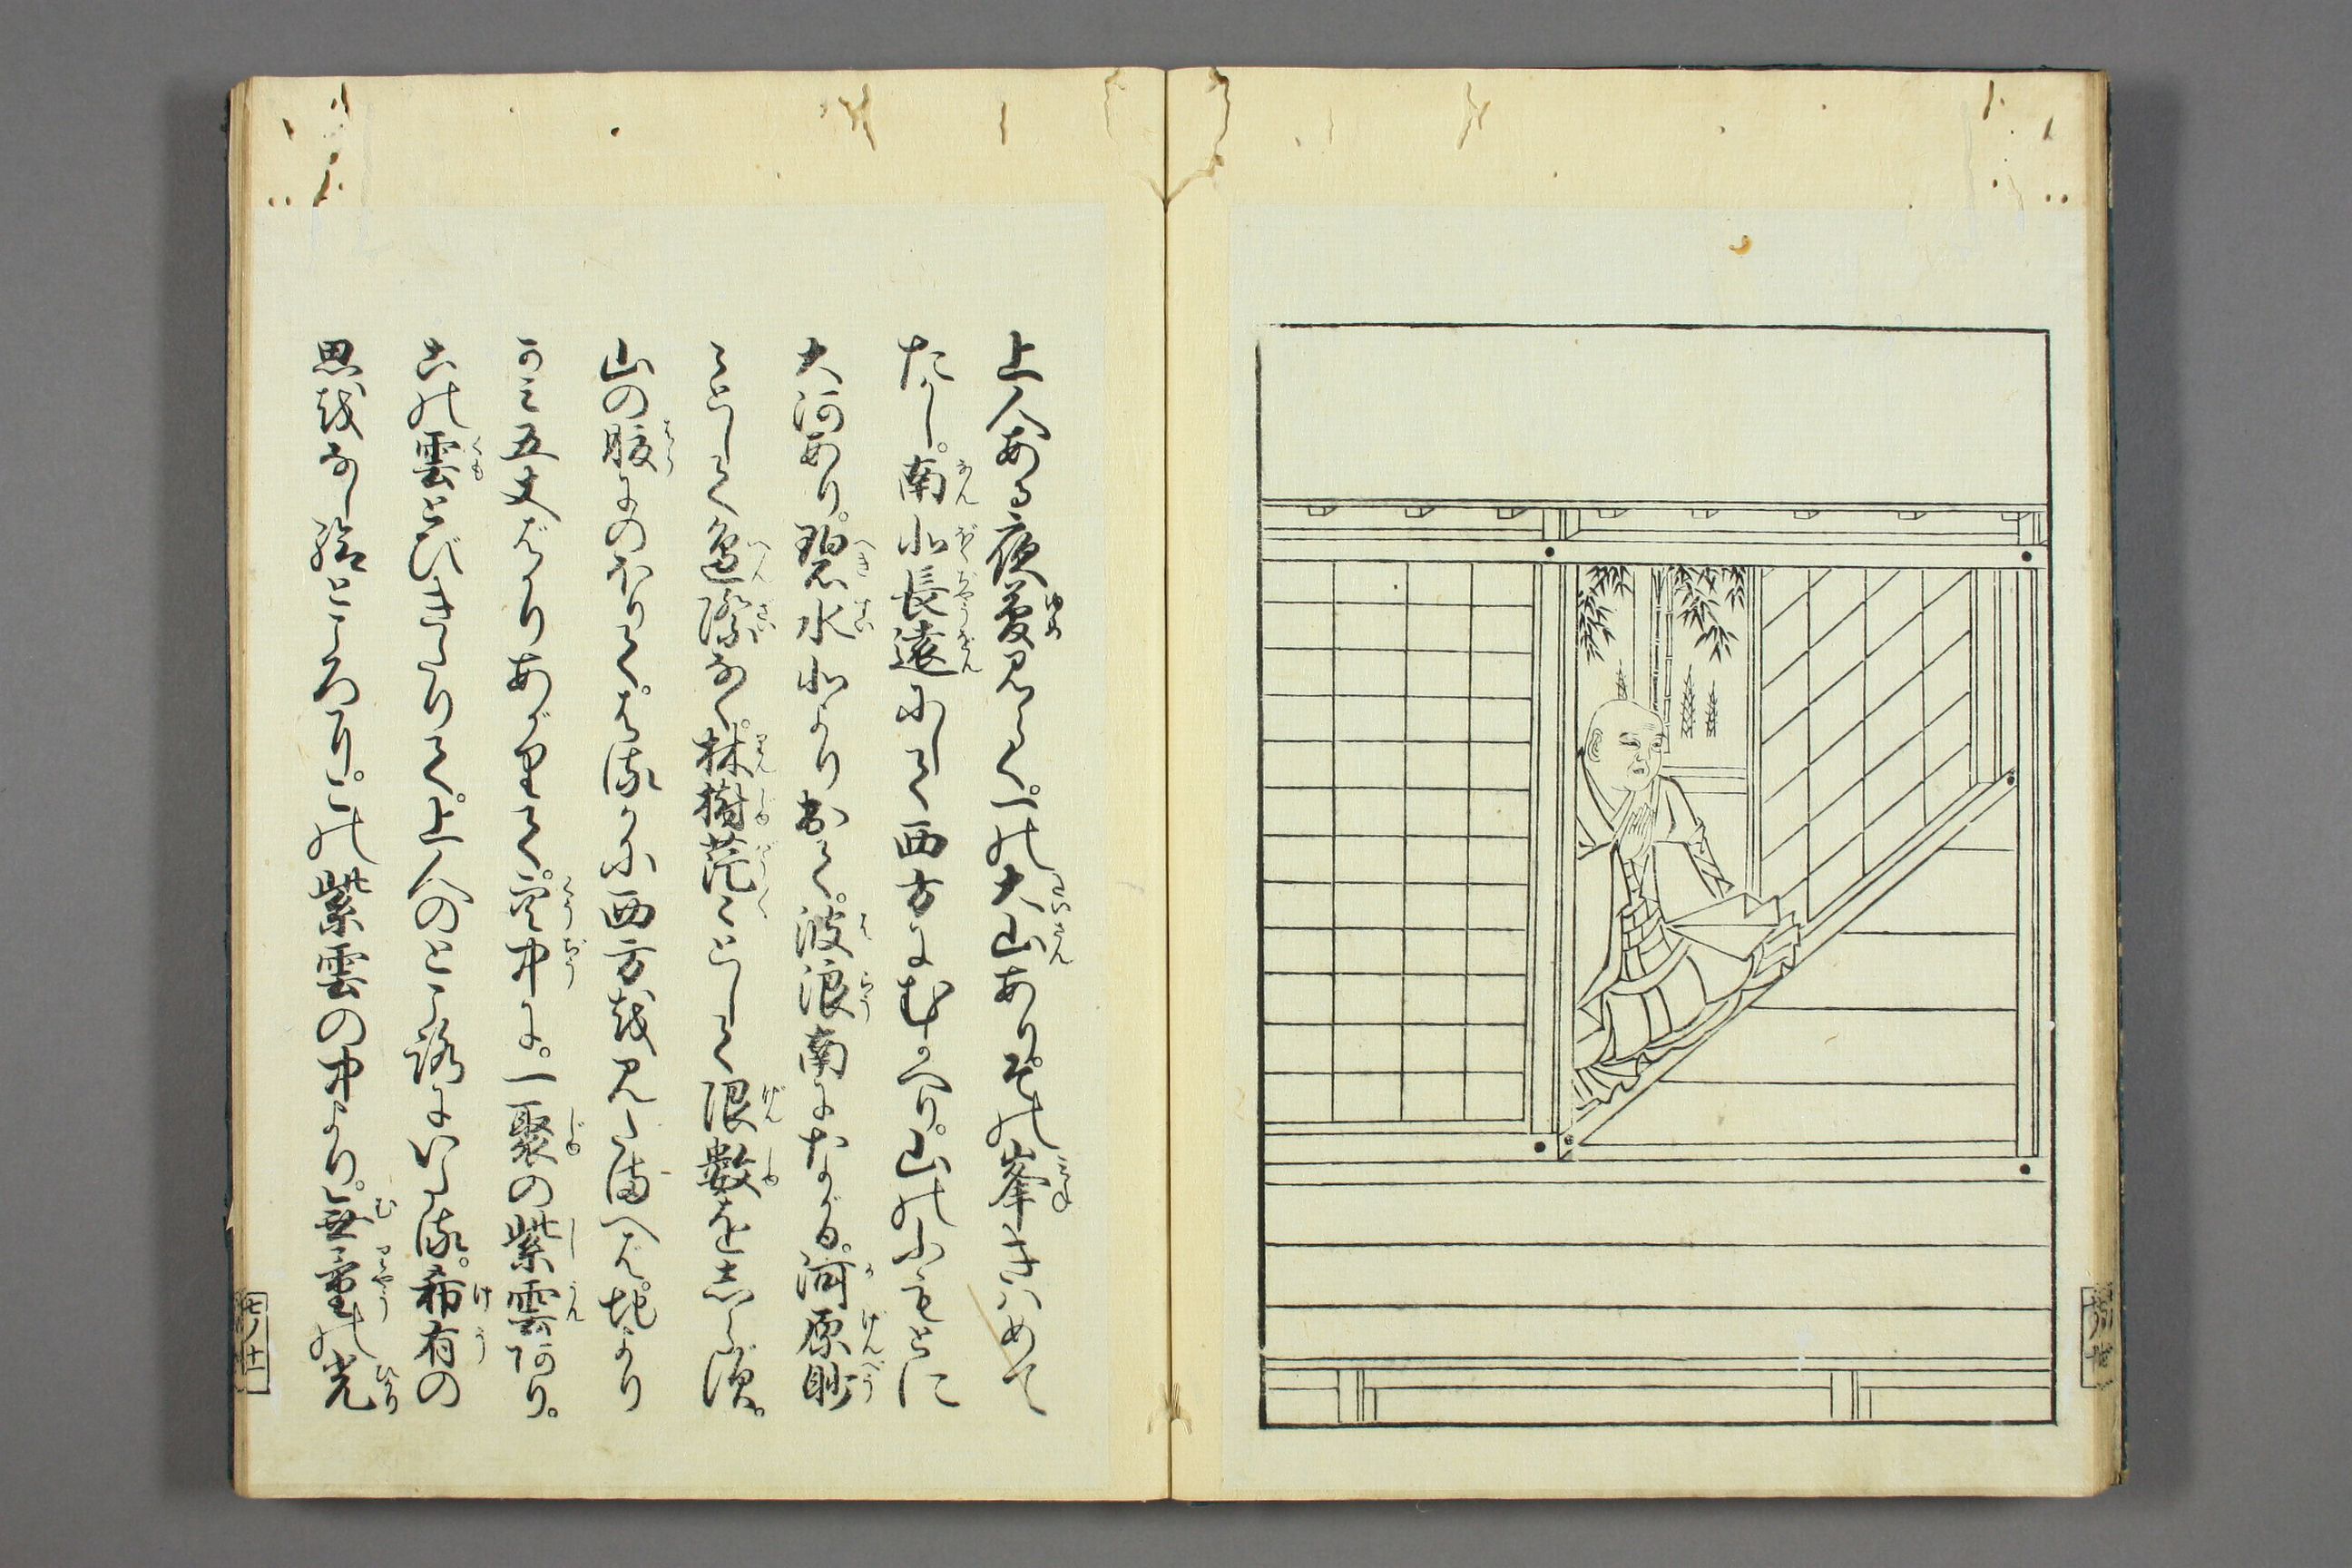 上人ある夜夢見らく。一の大山あり。その峯きはめて
たかし。南北長遠にして西方にむかへり。山のふもとに
大河あり。碧水北より出て。波浪南にながる。河原眇
々として辺際なく。林樹茫々として限数をしらず。
山の腹にのぼりて。はるかに西方を見たまへば。地より
かみ五丈ばかりあがりて。空中に。一聚の紫雲あり。
この雲とびきたりて。上人のところにいたる。希有の
思をなし給ところに。この紫雲の中より。無量の光
七ノ十一